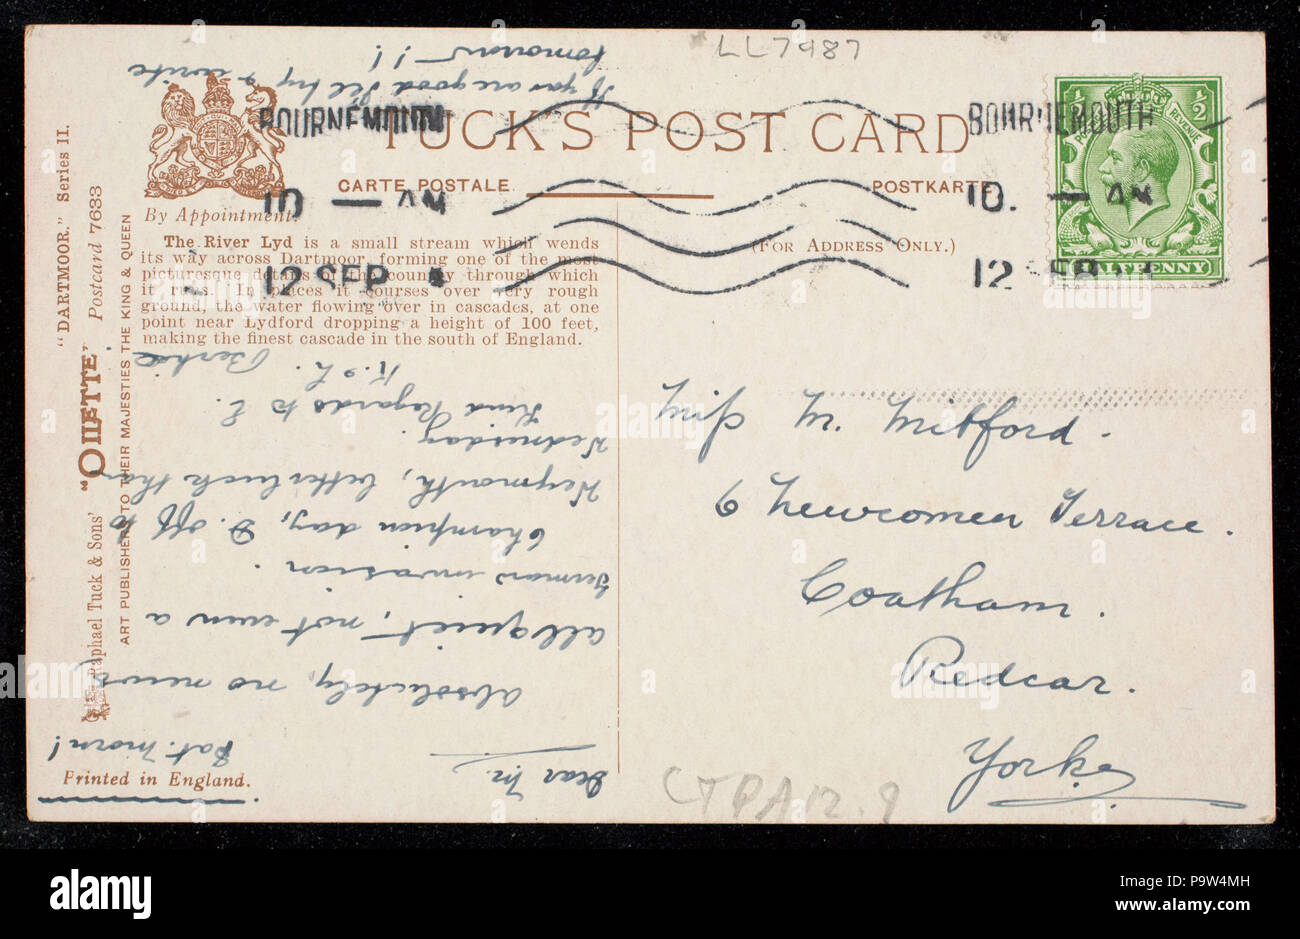 LL7487
TUCK'S POST CARD
CARTE POSTALE
POSTKARTE
(FOR ADDRESS ONLY.)
By Appointment
The River Lyd is a small stream which wends
its way across Dartmoor, forming one of the most
picturesque details of the country through which
it runs. In places it courses over very rough
ground, the water flowing over in cascades, at one
point near Lydford dropping a height of 100 feet,
making the finest cascade in the south of England.
BOURNEMOUTH
10 — AM
12 SEP
BOURNEMOUTH
10. — AM
12 SEP
1/2
1/2
POSTAGE
REVENUE
HALFPENNY
"DARTMOOR." Series II.
"OILETTE" Postcard 7633
Raphael Tuck & Sons'
ART PUBLISHERS TO THEIR MAJESTIES THE KING & QUEEN
Printed in England.
Sat. Morn!
Dear M.
Absolutely no news
all quiet, not even a
German invasion.
Champion day, D. off to
Weymouth, better luck than
Wednesday.
Kind Regards to E.
Bertie
If you are good I'll try & write
tomorrow—!!
Miss M. Mitford.
6 Newcomen Terrace.
Coatham.
Redcar.
Yorks
CTPA12.9
alamy
a
a
a
alamy
Image ID: P9W4MH
www.alamy.com